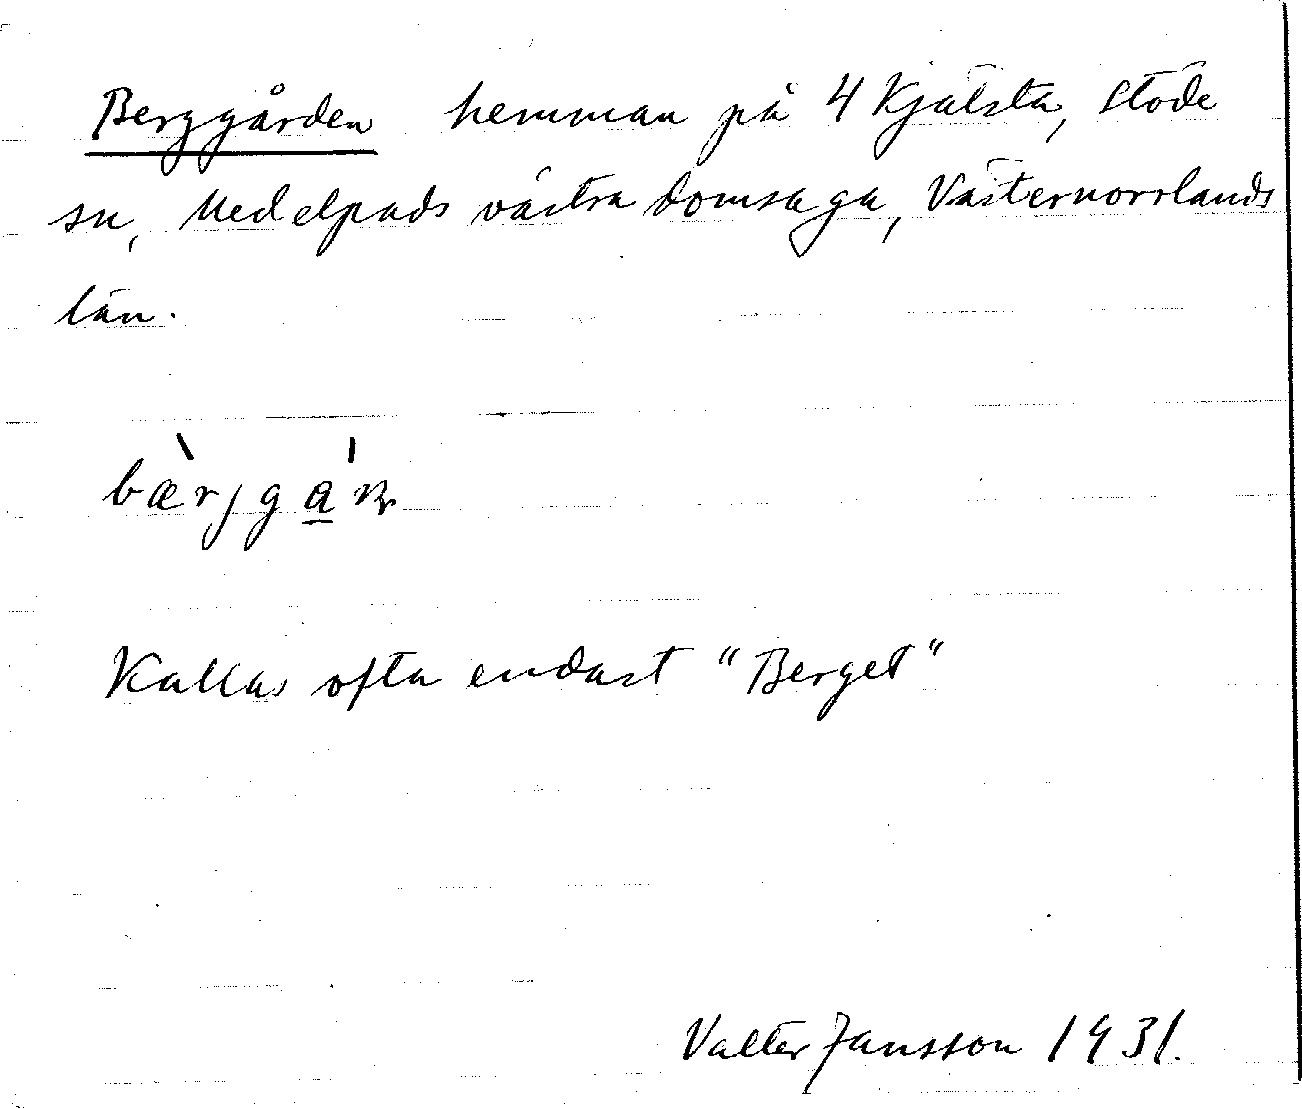 Berggården hemman på 4 Kjälsta, Stöde
sn, Medelpads västra domsaga, Västernorrlands
län.
bæ̀rjga̱̍ɳ
Kallas ofta endast "Berget"
Valter Jansson 1931.